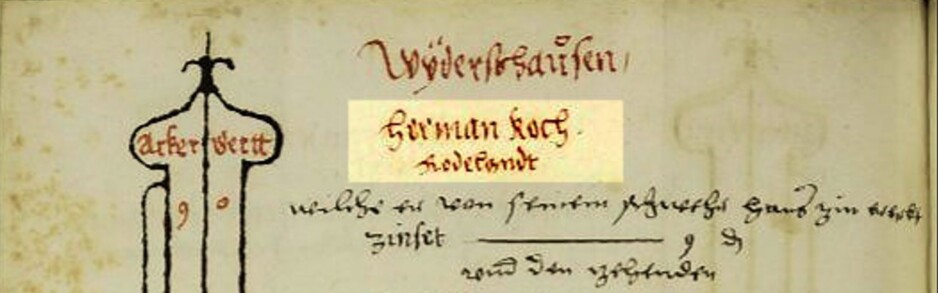 Wÿdershaůsen
Acker Wertt
herman Koch
Rodelandt
9 0
welche er von seinem schweher Hans
Zinset 9 ₰
vnd den zehenden